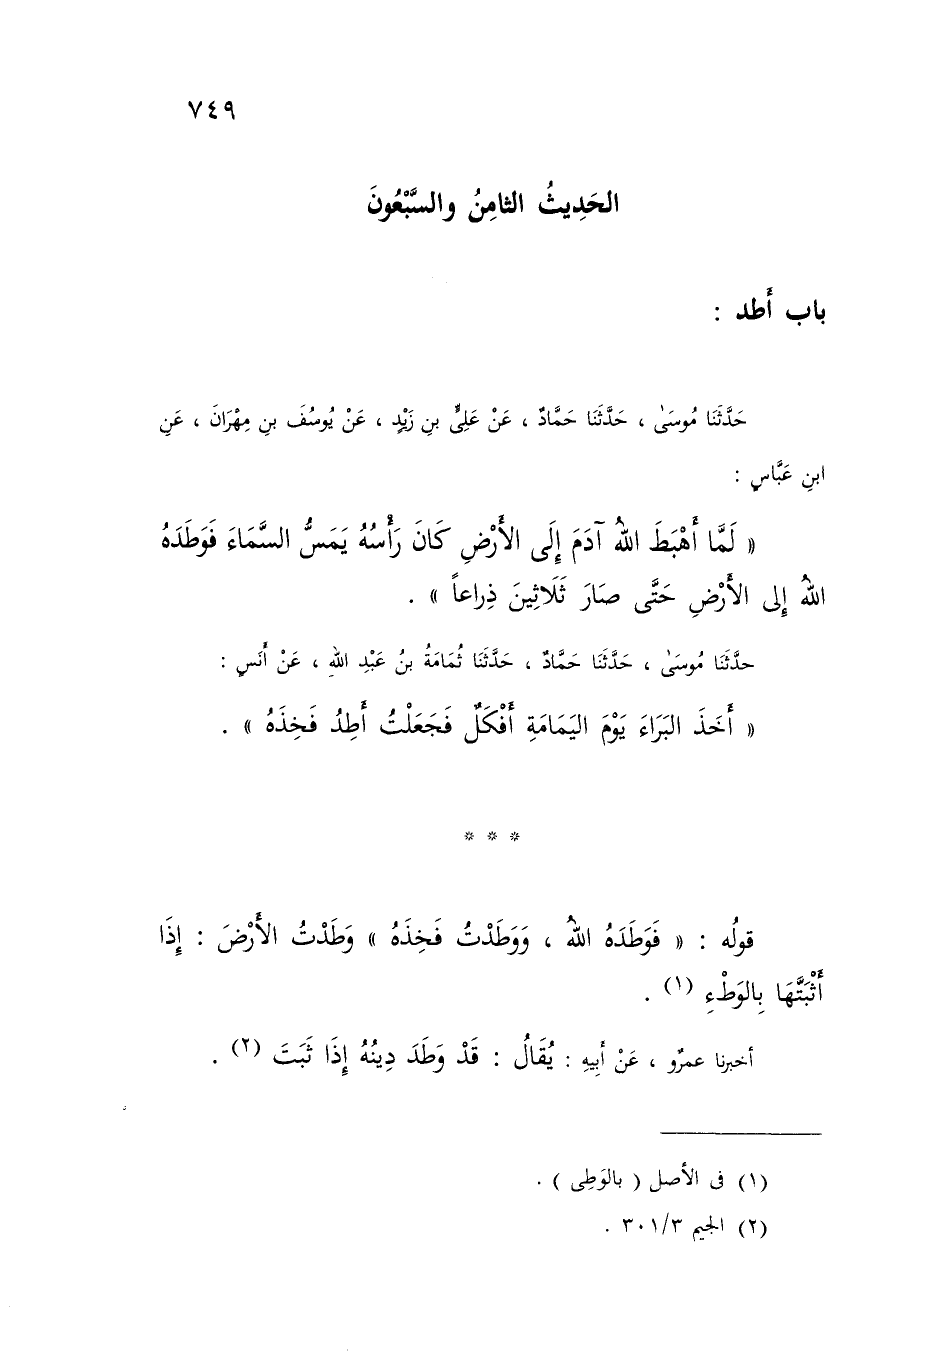 ٧٤٩
الحَدِيثُ الثامِنُ والسَّبْعُونَ
باب أَطد :
حَدَّثَنَا مُوسَىٰ ، حَدَّثَنَا حَمَّادٌ ، عَنْ عَلِىٍّ بنِ زَيْدٍ ، عَنْ يُوسُفَ بنِ مِهْرَانَ ، عَنِ
ابنِ عَبَّاسٍ :
« لَمَّا أَهْبَطَ اللهُ آدَمَ إِلَى الأَرْضِ كَانَ رَأْسُهُ يَمَسُّ السَّمَاءَ فَوَطَدَهُ
اللهُ إِلى الأَرْضِ حَتَّى صَارَ ثَلَاثِينَ ذِراعاً » .
حدَّثَنَا مُوسَىٰ ، حَدَّثَنَا حَمَّادٌ ، حَدَّثَنَا ثُمَامَةُ بنُ عَبْدِ اللهِ ، عَنْ أَنَسٍ :
« أَخَذَ البَرَاءَ يَوْمَ اليَمَامَةِ أَفْكَلٌ فَجَعَلْتُ أَطِدُ فَخِذَهُ » .
* * *
قولُه : « فَوَطَدَهُ اللهُ ، وَوَطَدْتُ فَخِذَهُ » وَطَدْتُ الأَرْضَ : إِذَا
أَثْبَتَّهَا بِالوَطْءِ (١) .
أخبرنا عمرٌو ، عَنْ أَبِيهِ : يُقَالُ : قَدْ وَطَدَ دِينُهُ إِذَا ثَبَتَ (٢) .
(١) فى الأصل ( بالوَطِى ) .
(٢) الجيم ٣٠١/٣ .